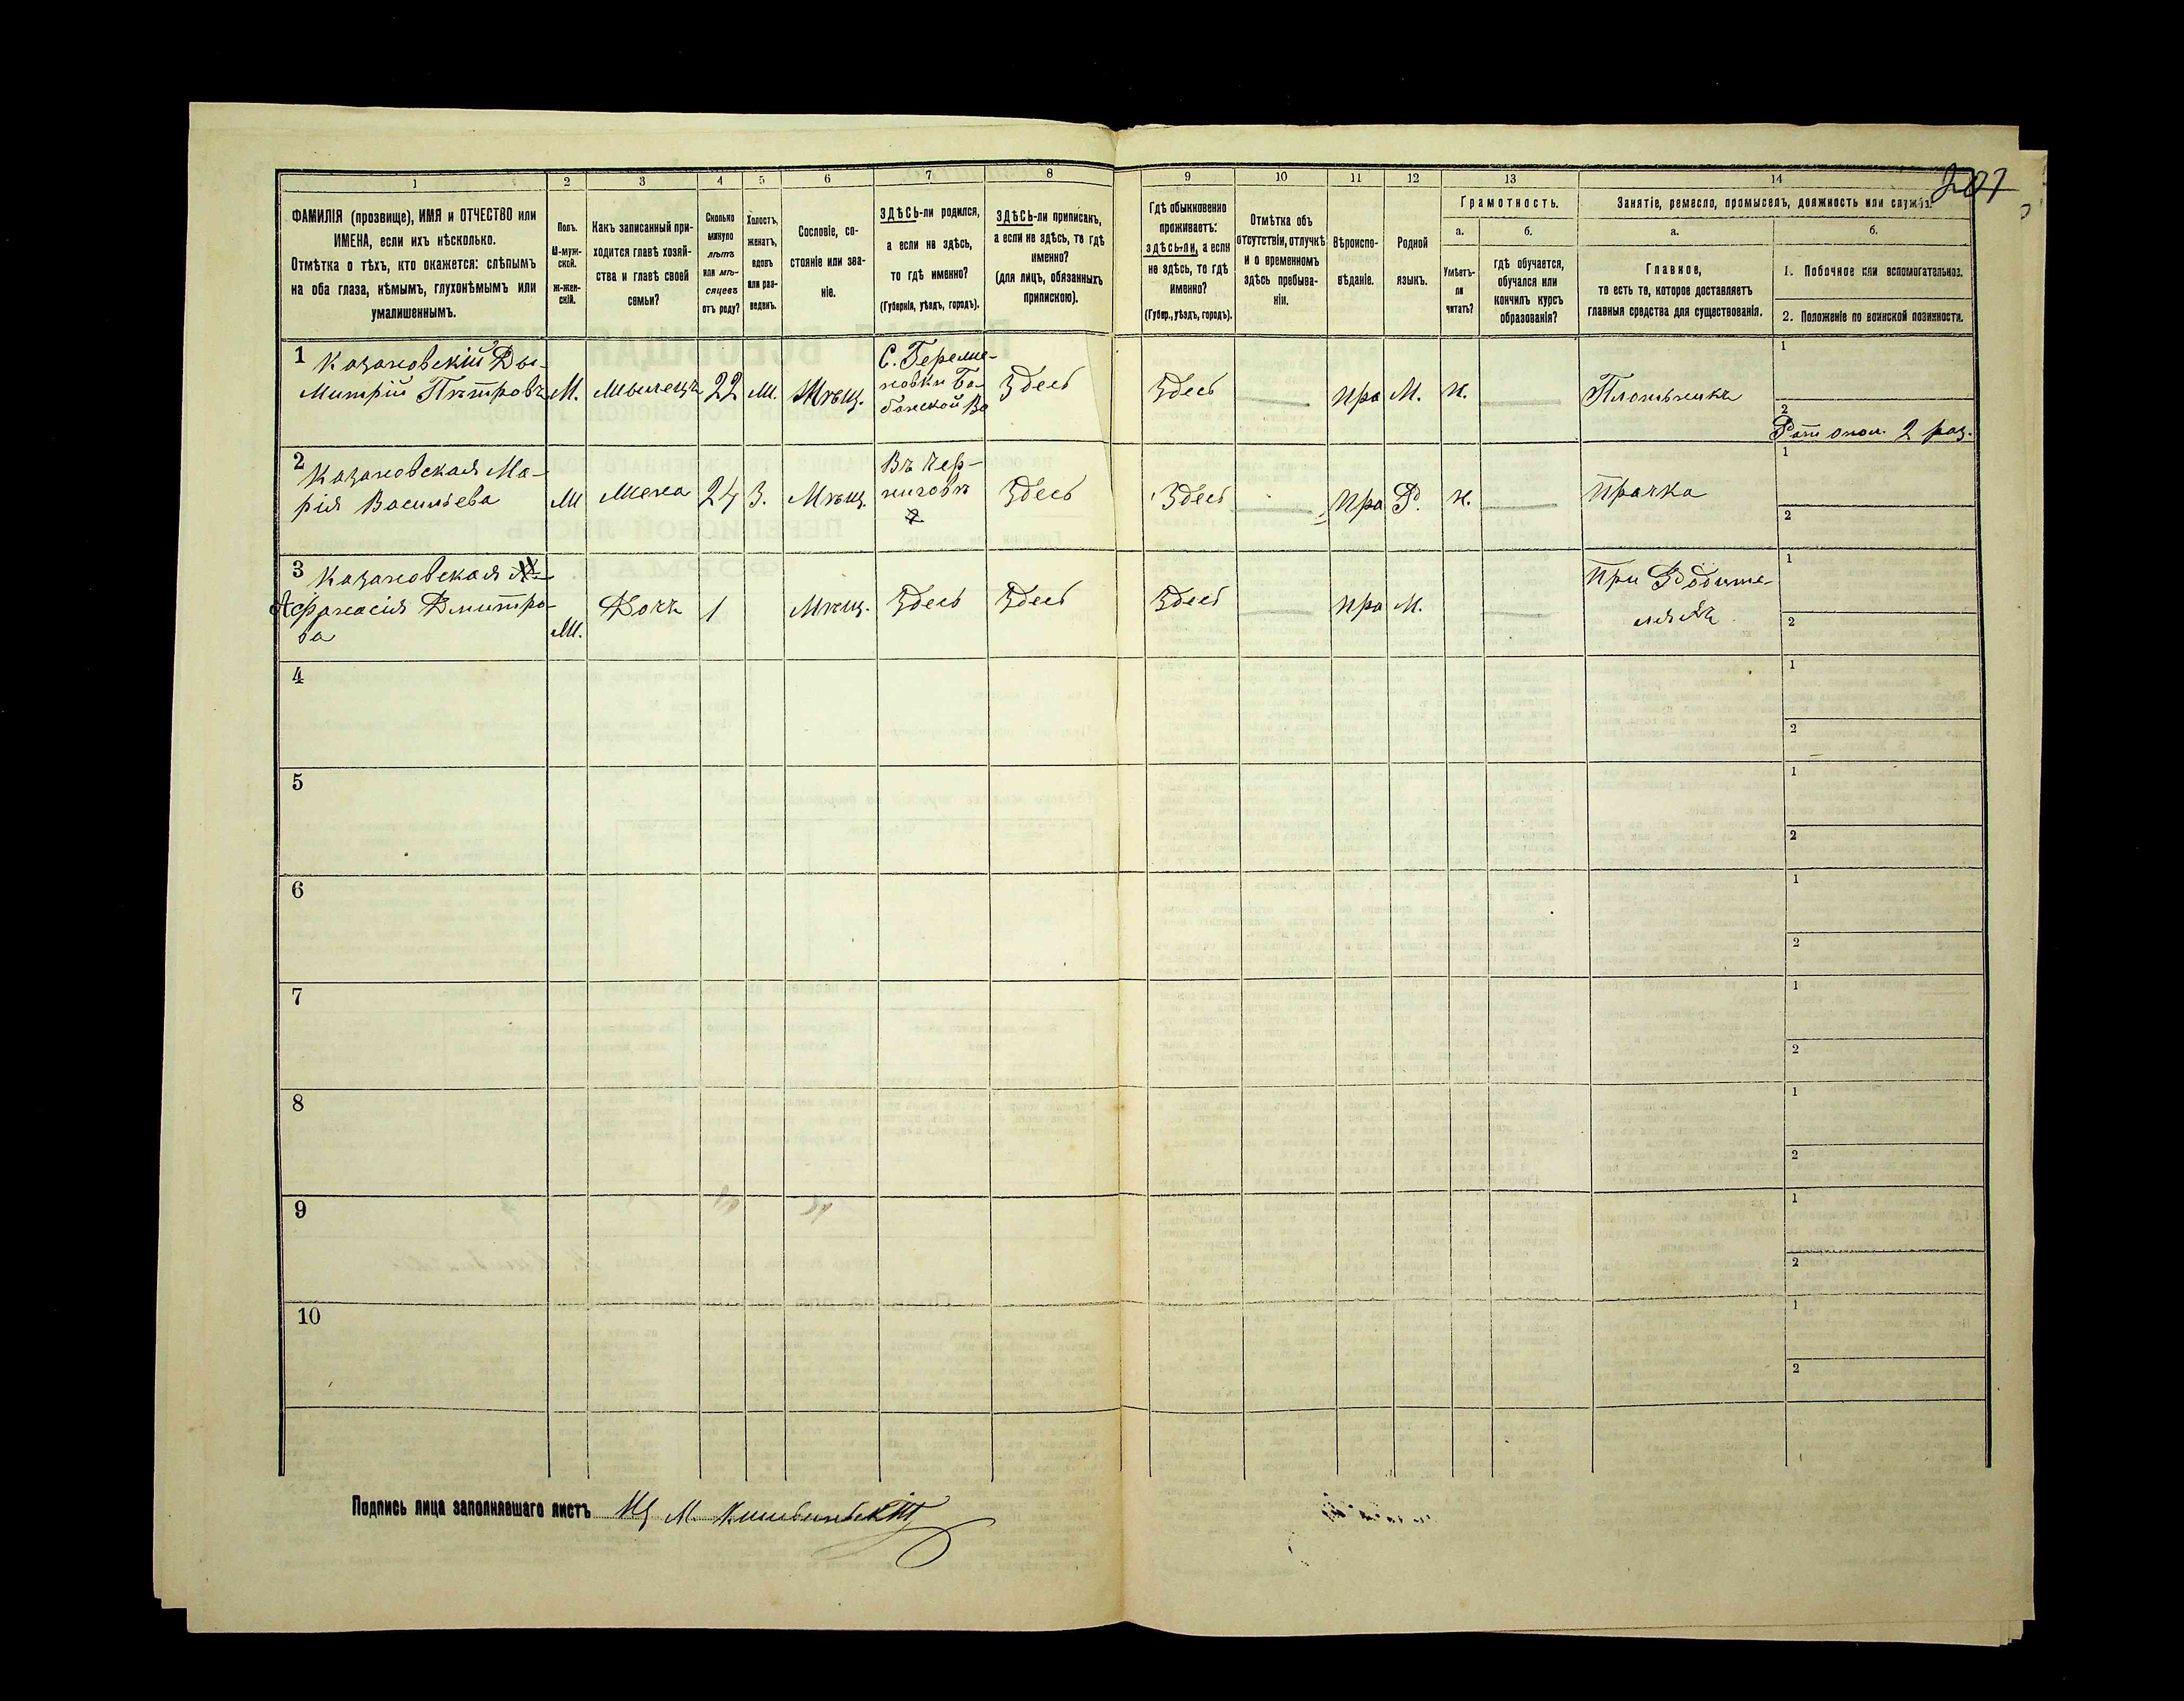 207
1 2 3 4 5 6 7 8 9 10 11 12 13 14
ФАМИЛІЯ (прозвище), ИМЯ и ОТЧЕСТВО или
ИМЕНА, если ихъ нѣсколько.
Отмѣтка о тѣхъ, кто окажется: слѣпымъ
на оба глаза, нѣмымъ, глухонѣмымъ или
умалишеннымъ.
Полъ.
М-муж-
ской.
Ж-жен-
скій.
Какъ записанный при-
ходится главѣ хозяй-
ства и главѣ своей
семьи?
Сколько
минуло
лѣтъ
или мѣ-
сяцевъ
отъ роду?
Холостъ,
женатъ,
вдовъ
или раз-
веденъ.
Сословіе, со-
стояніе или зва-
ніе.
ЗДѢСЬ-ли родился,
а если не здѣсь,
то гдѣ именно?
(Губернія, уѣздъ, городъ).
ЗДѢСЬ-ли приписанъ,
а если не здѣсь, то гдѣ
именно?
(для лицъ, обязанныхъ
припискою).
Гдѣ обыкновенно
проживаетъ:
здѣсь-ли, а если
не здѣсь, то гдѣ
именно?
(Губер., уѣздъ, городъ).
Отмѣтка объ
отсутствіи, отлучкѣ
и о временномъ
здѣсь пребыва-
ніи.
Вѣроиспо-
вѣданіе.
Родной
языкъ.
Грамотность.
а.
Умѣетъ-
ли
читать?
б.
гдѣ обучается,
обучался или
кончилъ курсъ
образованія?
Занятіе, ремесло, промыселъ, должность или служба.
а.
Главное,
то есть то, которое доставляетъ
главныя средства для существованія.
б.
1. Побочное или вспомогательное.
2. Положеніе по воинской повинности.
1 Казановскій Ды-
митрій Пѣтровъ
М.
22
М.
Мѣщ.
С. Веремие-
Здесь
Здесь
Пра
М.
н.
Плотьникъ
1
2
2 раз.
2 Казановская Ма-
рія Васильева
М
Жена
24
З.
Мѣщ.
Въ Чер-
ниговѣ
Здесь
Здесь
Пра
Р.
н.
Прачка
1
2
3 Казановская
Афанасія Дмитро-
ва
М.
Дочъ
1
Мѣщ.
Здесь
Здесь
Здесь
Пра
М.
При Родите-
ляхъ
1
2
4
1
2
5
1
2
6
1
2
7
1
2
8
1
2
9
1
2
10
1
2
Подпись лица заполнявшаго листъ